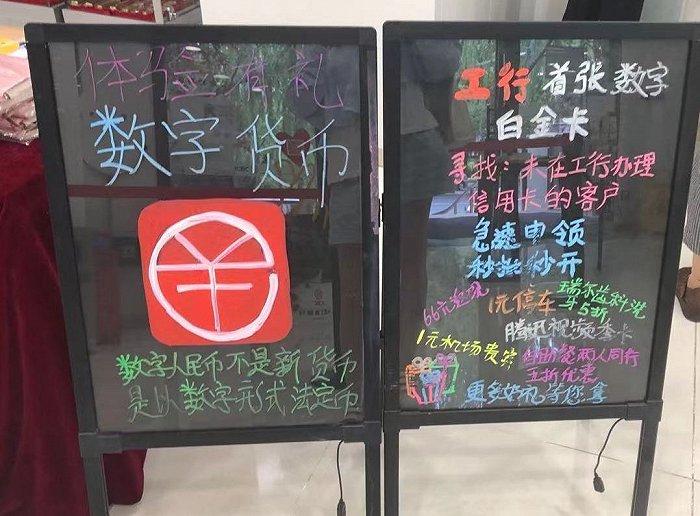 体验有礼
数字货币
数字人民币不是新货币
是以数字形式法定币
工行首张数字
白金卡
寻找：未在工行办理
信用卡的客户
急速申领
秒批秒开
1元停车
瑞尔齿科洗
牙5折
腾讯视频季卡
1元机场贵宾
两人同行
五折优惠
更多好礼等您拿